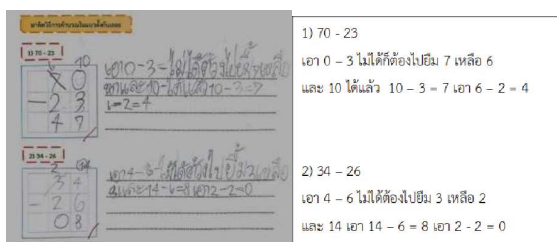 มาคิดวิธีการคำนวณในแนวตั้งกันเถอะ
1) 70 - 23
6 10
7 0
- 2 3
4 7
เอา 0 - 3 = ไม่ได้ต้องไปยืม เหลือ
6 และ 10 ได้แล้ว 10 - 3 = 7
6 - 2 = 4
2) 34 - 26
2 14
3 4
- 2 6
0 8
เอา 4 - 6 = ไม่ได้ต้องไปยืม เหลือ
2 และ 14 - 6 = 8 เอา 2 - 2 = 0
1) 70 - 23
เอา 0 – 3 ไม่ได้ก็ต้องไปยืม 7 เหลือ 6
และ 10 ได้แล้ว 10 – 3 = 7 เอา 6 – 2 = 4
2) 34 – 26
เอา 4 – 6 ไม่ได้ต้องไปยืม 3 เหลือ 2
และ 14 เอา 14 – 6 = 8 เอา 2 - 2 = 0